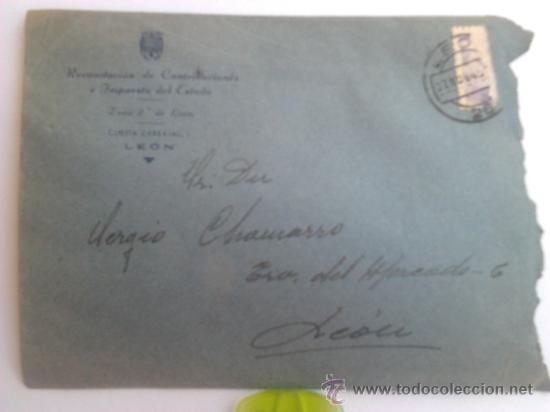 Recaudación de Contribuciones
e Impuestos del Estado
Zona 2ª de León
CUESTA CARBAJAL, 1
LEÓN
LEON
26
Sr. Dn
Sergio Chamarro
Trv. del Mercado-6
León
© todocoleccion
www.todocoleccion.net